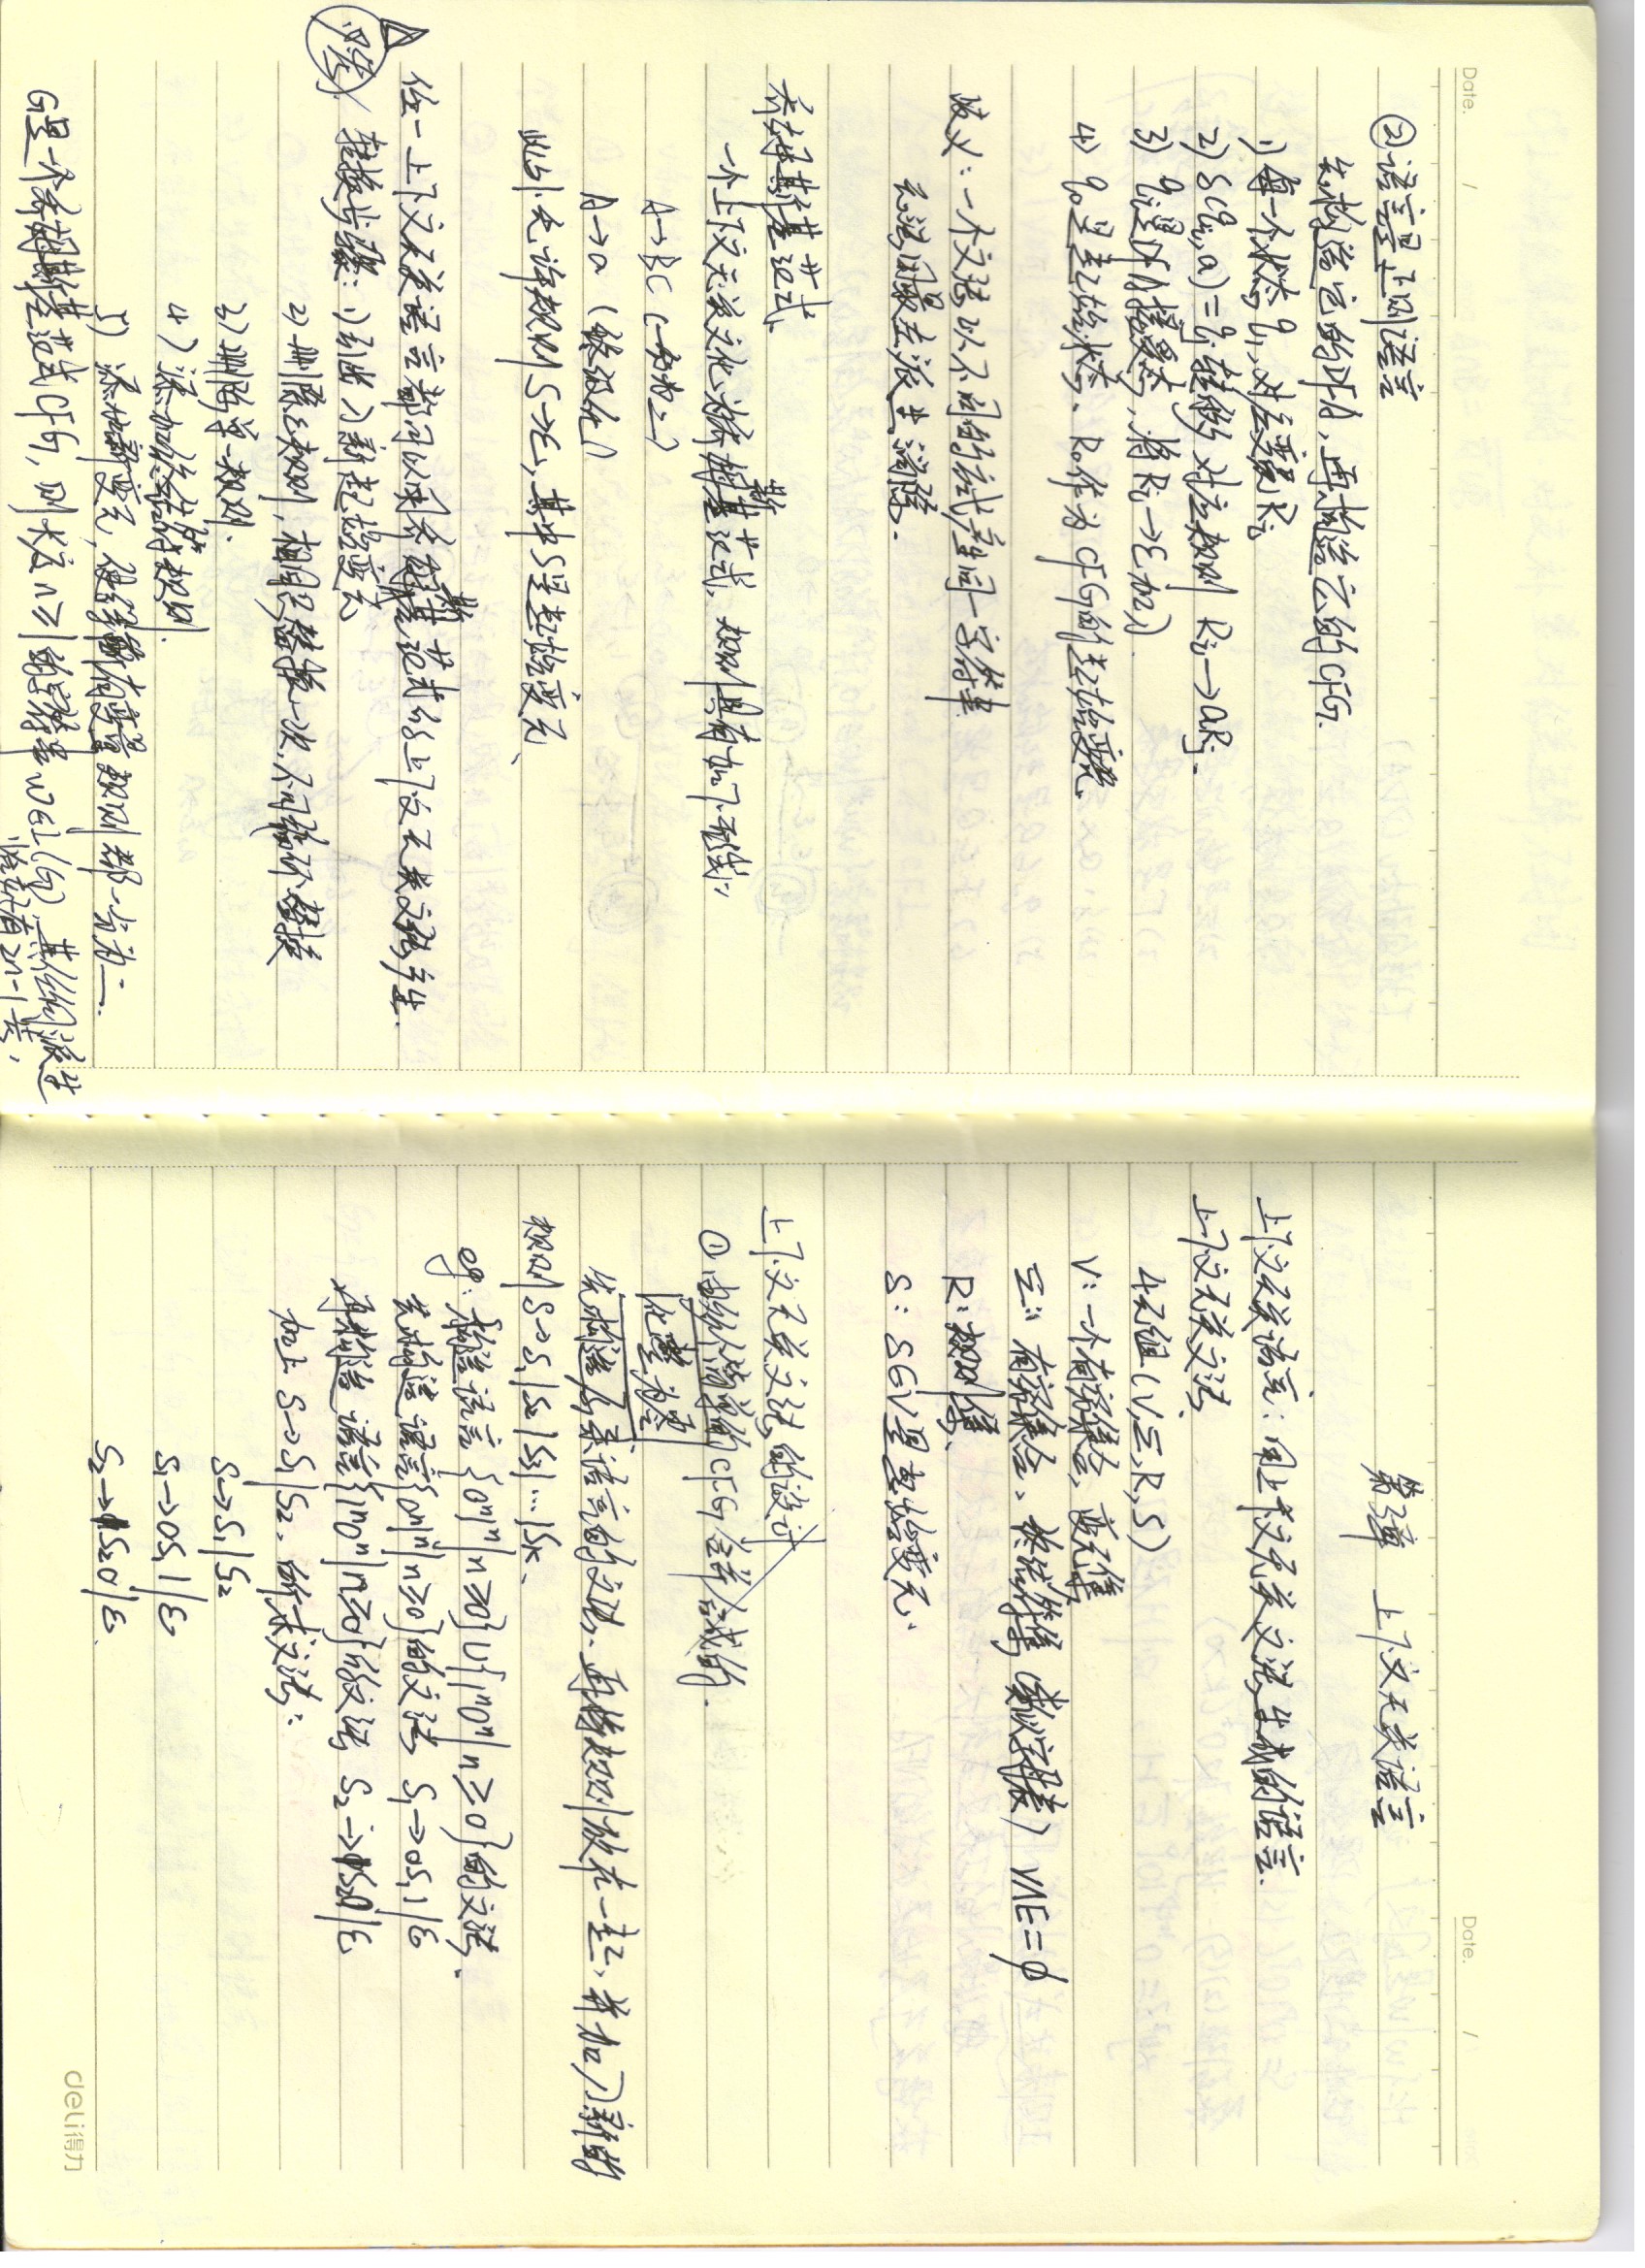 Date. /
②语言是正则语言
先构造它的DFA,再构造它的CFG.
1) 每一个状态qi,对应变元Ri
2) δ(qi,a)=qj转移 对应规则 Ri→aRj.
3) qi是DFA接受态,将Ri→ε加入.
4) q0是起始状态、R0作为CFG的起始变元
歧义:一个文法以不同的方式产生同一字符串.
无法用最左派生消除.
乔姆斯基范式.
一个上下文无关文化为乔姆斯基范式,规则具有如下形式:
A→BC (一分为二)
A→a (终级化)
此外允许规则S→ε,其中S是起始变元、
△ 任一上下文无关语言都可以用乔姆斯基范式的上下文无关文法产生.
必考 转换步骤:1)引出入新起始变元
2)删除ε规则,相同只替换一次,不可循环替换
3)删除单一规则.
4)添加终结符规则.
5) 添加新变元,使得所有变量规则都一分为二.
G是一个乔姆斯基范式CFG,则长度n≥1的字符串w∈L(G),其任何派生
恰好有2n-1步,
Date. /
第3章 上下文无关语言
上下文无关语言:用上下文无关文法生成的语言.
上下文无关文法.
4元组(V,Σ,R,S)
V:一个有穷集合,变元集
Σ:有穷集合、终结符集(类似字母表) V∩Σ=∅
R:规则集、
S:S∈V是起始变元.
上下文无关文法的设计
①由多个简单的CFG合并合成的.
化整为零
先构造后来语言的文法、再将规则放在一起,并加入新的
规则S→S1|S2|S3|…|Sk、
eg:构造语言{0ⁿ1ⁿ|n≥0}∪{1ⁿ0ⁿ|n≥0}的文法、
先构造语言{0ⁿ1ⁿ|n≥0}的文法 S1→0S11|ε
再构造语言{1ⁿ0ⁿ|n≥0}的文法 S2→1S20|ε
加上 S→S1|S2,所求文法:
S→S1|S2
S1→0S11|ε
S2→1S20|ε.
deli得力